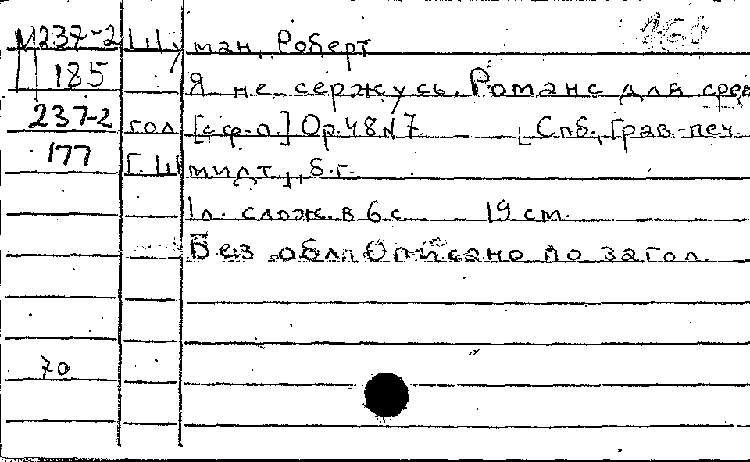 М237-2 Шуман, Роберт
185 Я не сержусь. Романс для сред
237-2 гол [с ф-п.] Op. 48 N 7 [Спб., Грав-печ
177 Г. Шмидт], б.г.
1 л. слож. в 6 с. 19 см.
Без обл. Описано по загол.
70